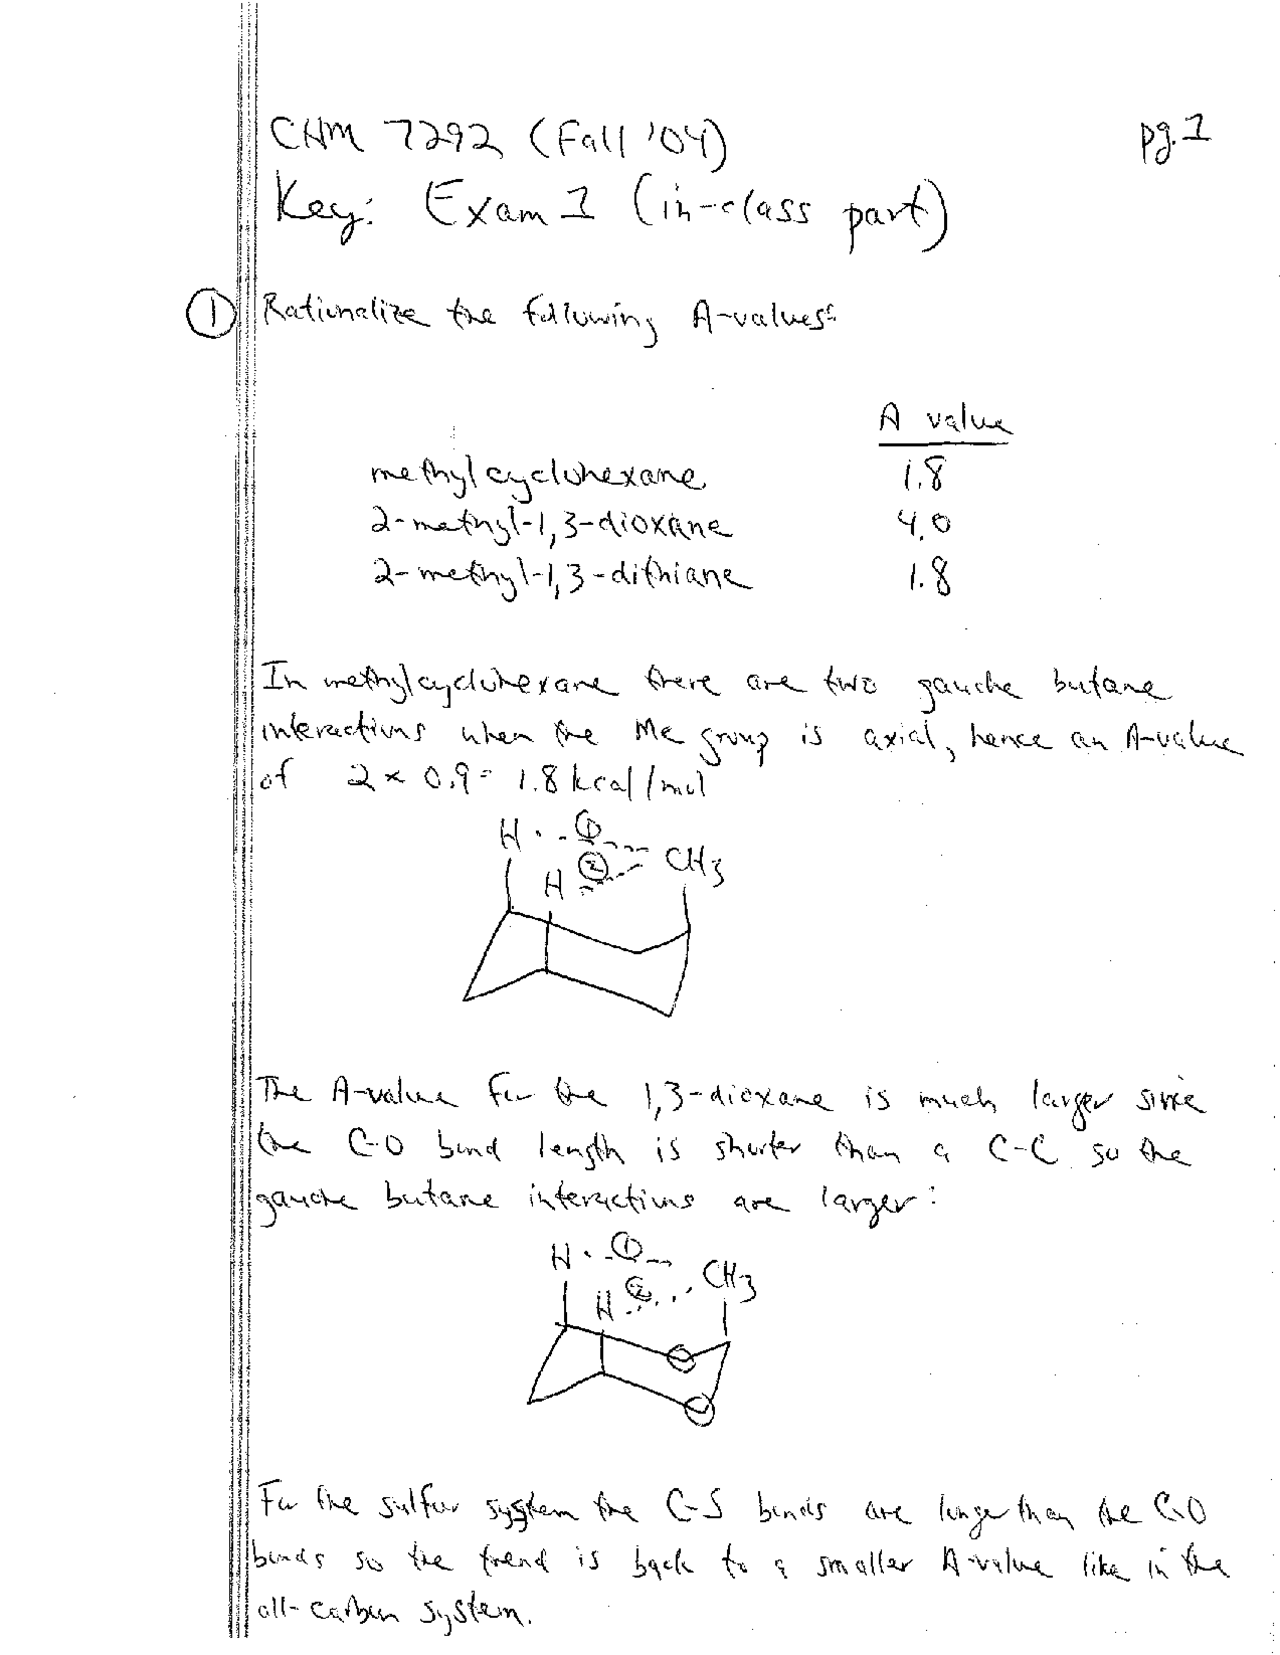 CHM 7292 (Fall '04)
pg. 1
Key: Exam 1 (in-class part)
① Rationalize the following A-values:
A value
methylcyclohexane 1.8
2-methyl-1,3-dioxane 4.0
2-methyl-1,3-dithiane 1.8
In methylcyclohexane there are two gauche butane
interactions when the Me group is axial, hence an A-value
of 2 × 0.9 = 1.8 kcal/mol
H ①
H ② CH3
The A-value for the 1,3-dioxane is much larger since
the C-O bond length is shorter than a C-C so the
gauche butane interactions are larger:
H ①
H ② CH3
O
O
For the sulfur system the C-S bonds are longer than the C-O
bonds so the trend is back to a smaller A-value like in the
all-carbon system.